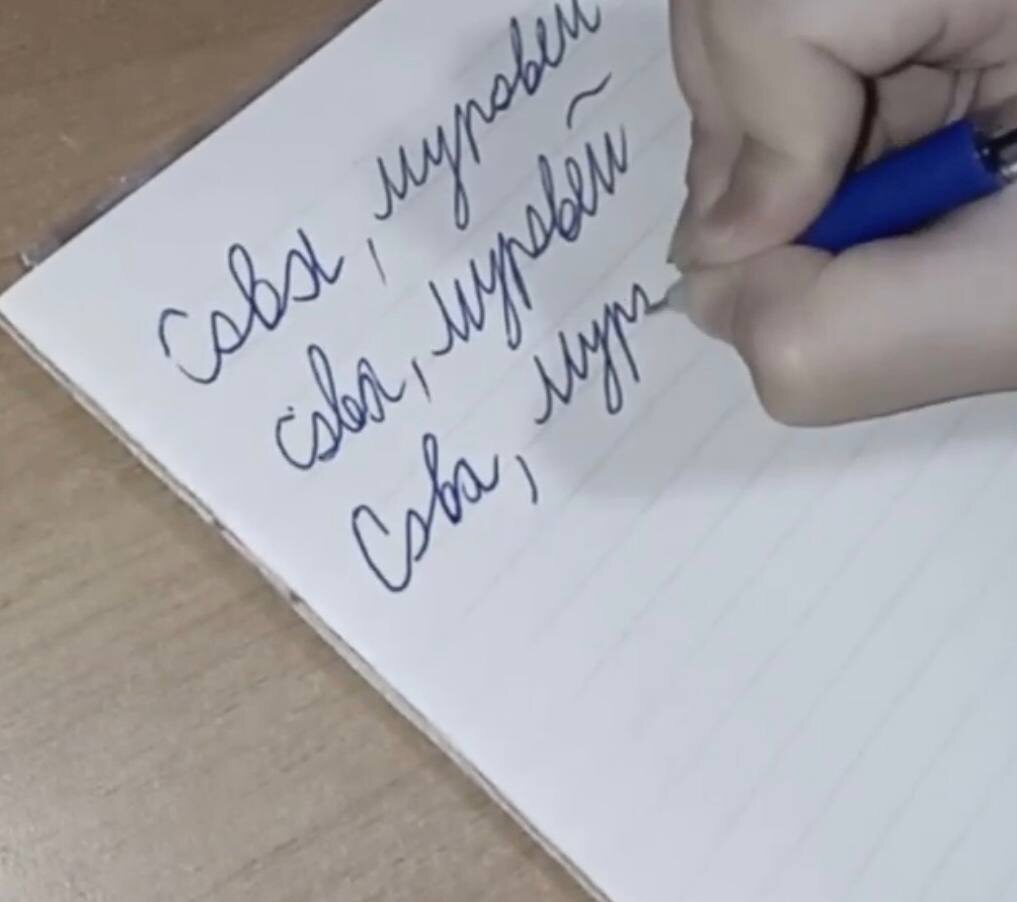 сова, муровей
сова, муровей
Сова, муро